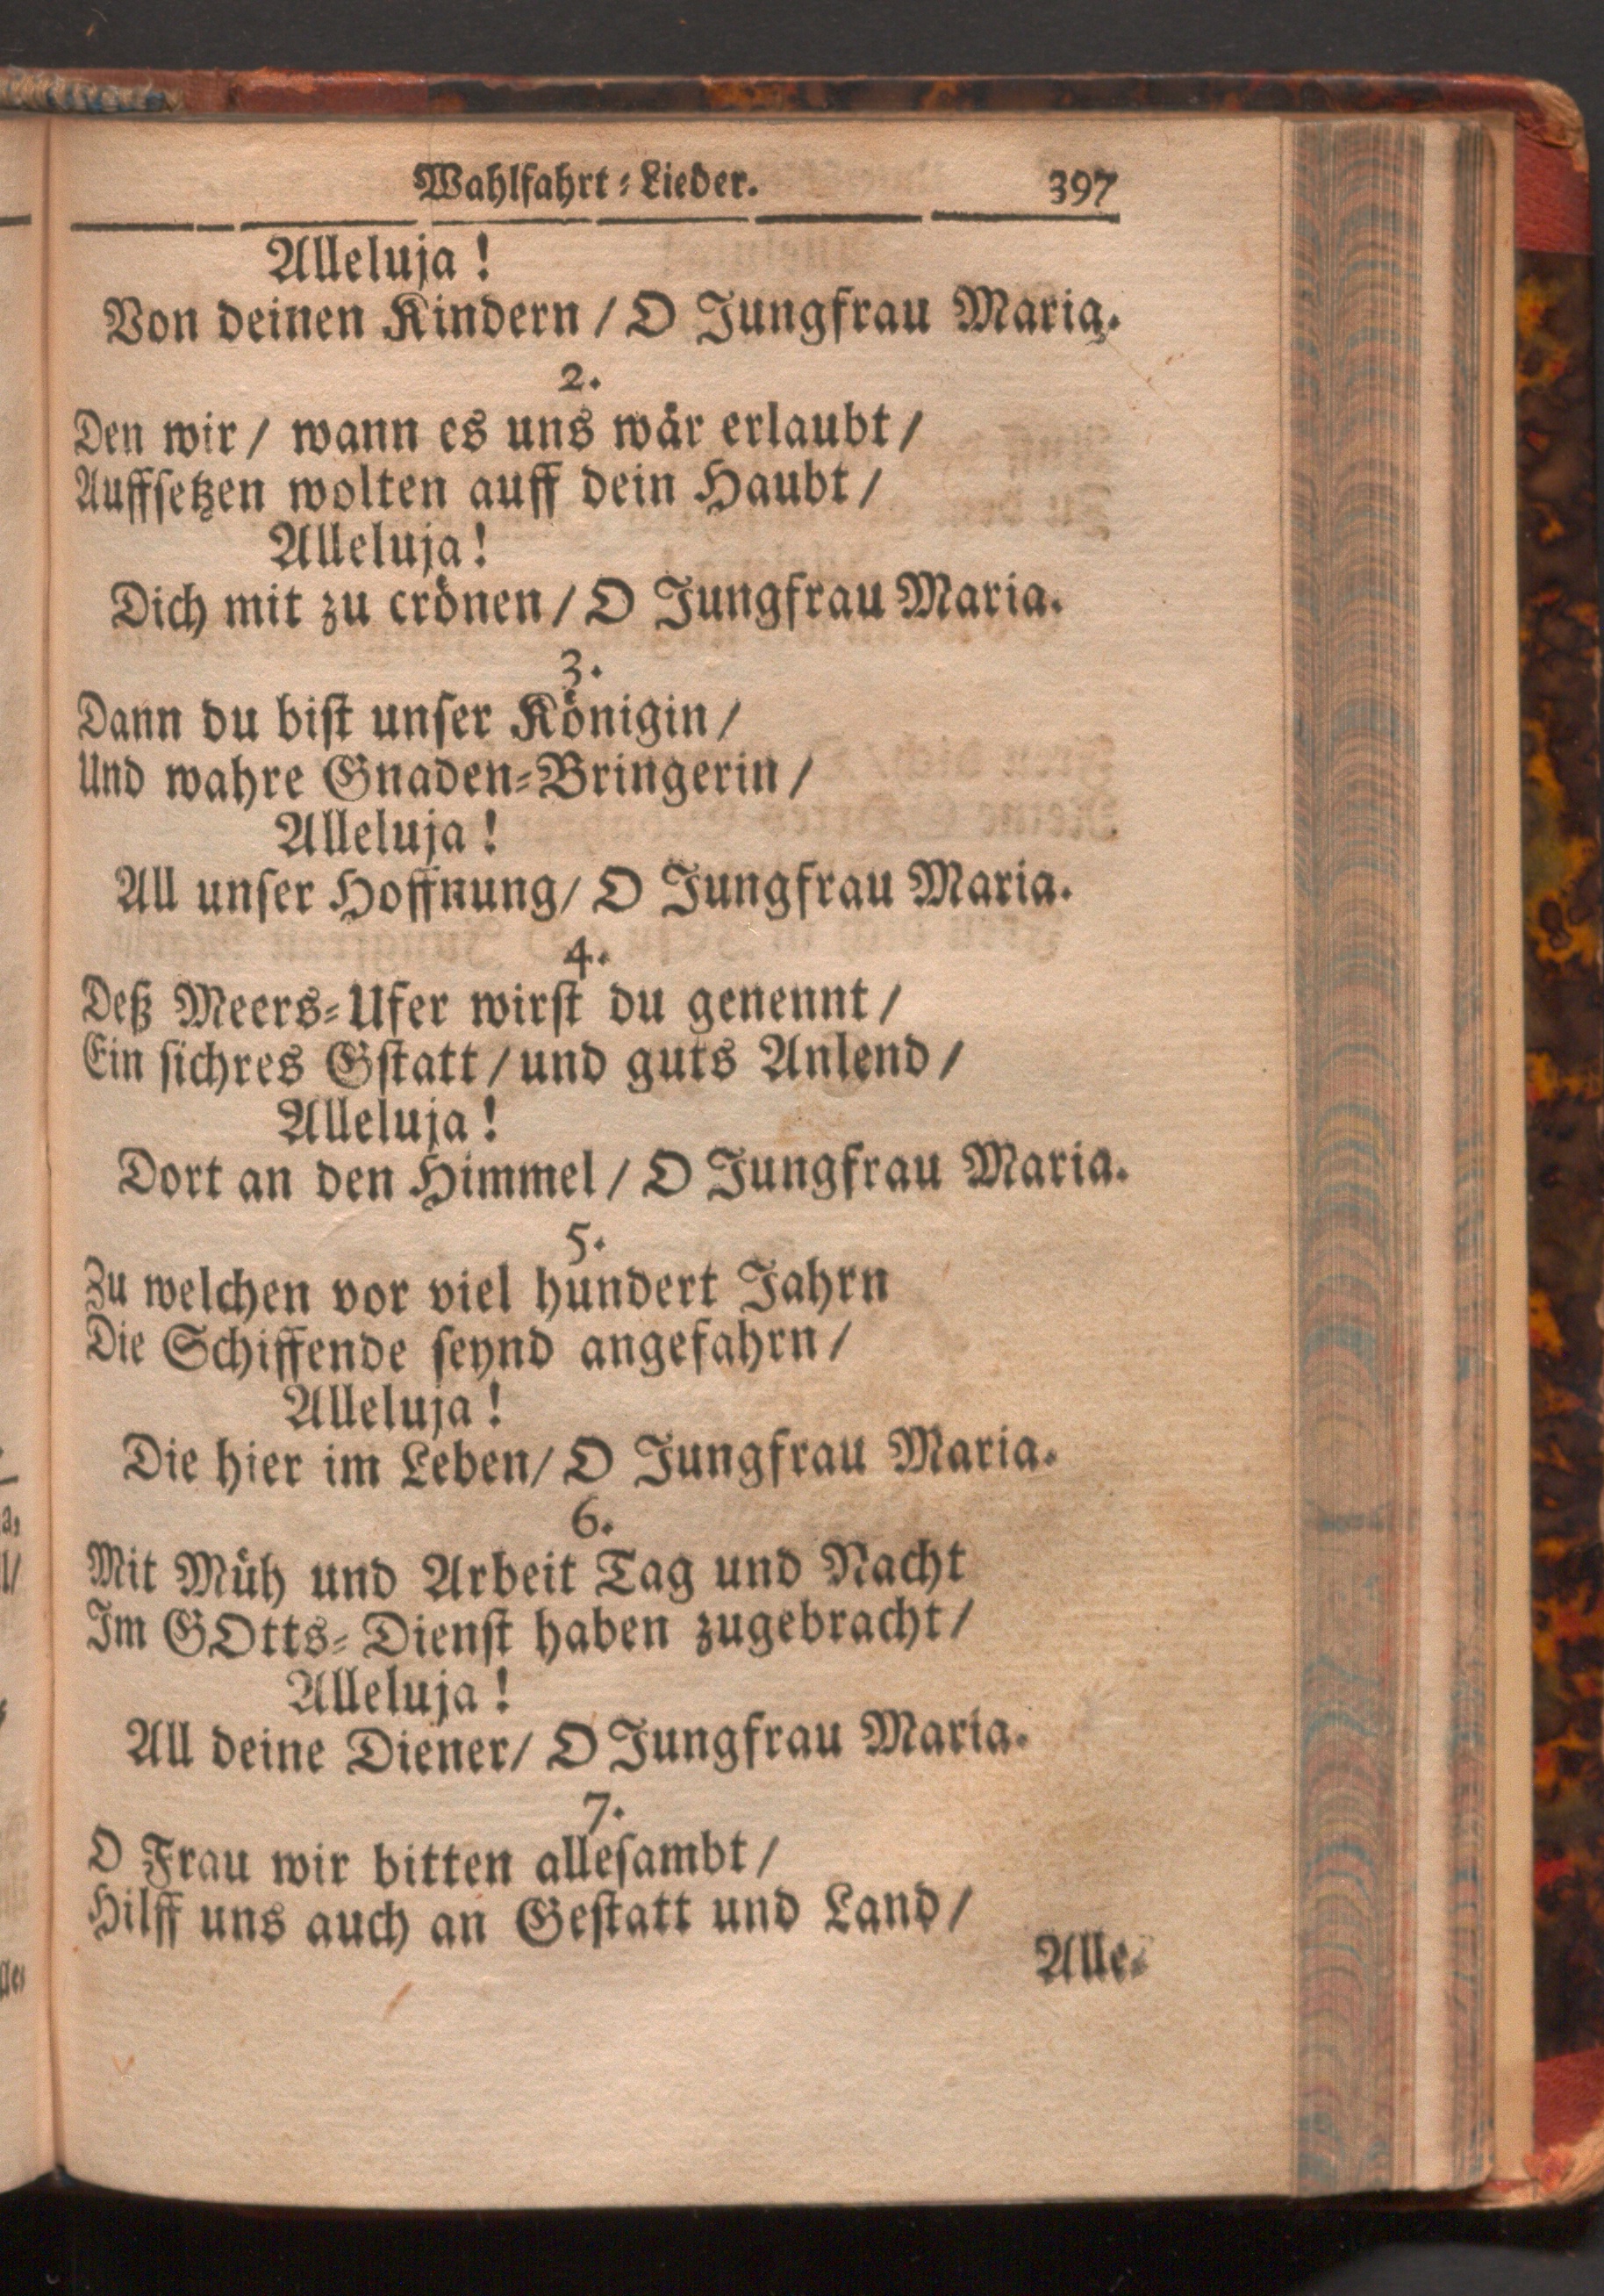 Wahlfahrt-Lieder. 397
Alleluja!
Von deinen Kindern / O Jungfrau Maria.
2.
Den wir / wann es uns wär erlaubt /
Auffsetzen wolten auff dein Haubt /
Alleluja!
Dich mit zu crönen / O Jungfrau Maria.
3.
Dann du bist unser Königin /
Und wahre Gnaden-Bringerin /
Alleluja!
All unser Hoffnung / O Jungfrau Maria.
4.
Deß Meers-Ufer wirst du genennt /
Ein sichres Gstatt / und guts Anlend /
Alleluja!
Dort an den Himmel / O Jungfrau Maria.
5.
Zu welchen vor viel hundert Jahrn
Die Schiffende seynd angefahrn /
Alleluja!
Die hier im Leben / O Jungfrau Maria.
6.
Mit Müh und Arbeit Tag und Nacht
Im GOtts-Dienst haben zugebracht /
Alleluja!
All deine Diener / O Jungfrau Maria.
7.
O Frau wir bitten allesambt /
Hilff uns auch an Gestatt und Land /
Alle-